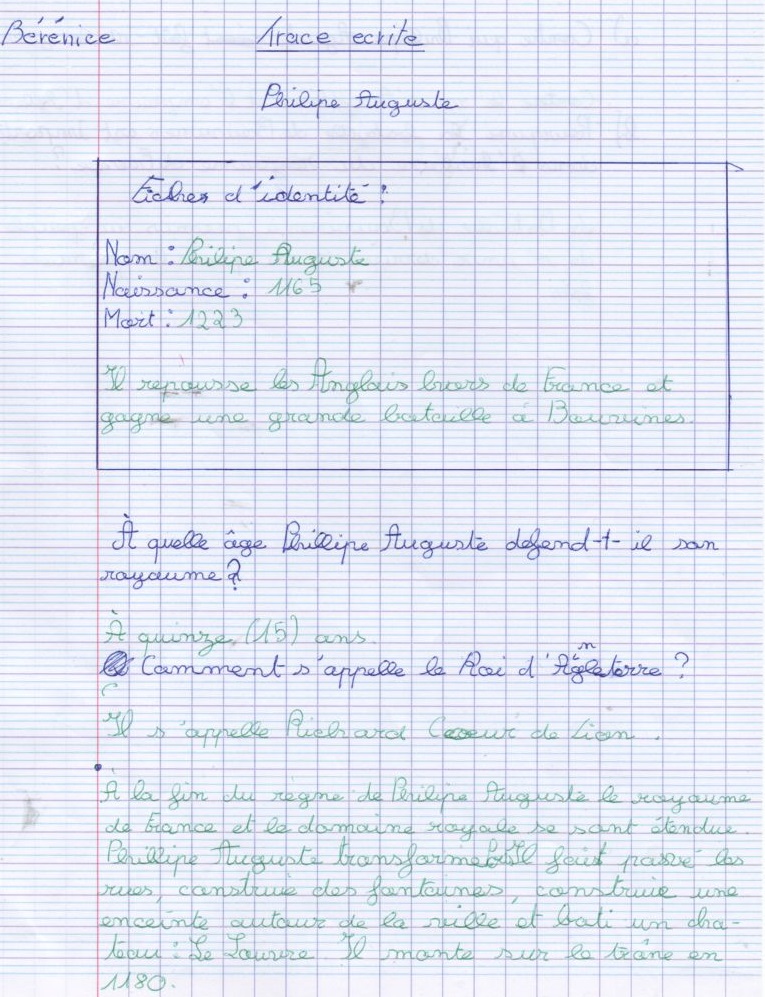 Bérénice
Trace ecrite
Philipe Auguste
Fiches d'identité :
Nom : Philipe Auguste
Naissance : 1165
Mort : 1223
Il repousse les Anglais hors de France et
gagne une grande bataille à Bouvines.
À quelle âge Phillipe Auguste défend-t-il son
royaume ?
À quinze (15) ans.
Comment s'appelle le Roi d'Angleterre ?
Il s'appelle Richard Coeur de Lion.
À la fin du règne de Philipe Auguste le royaume
de France et le domaine royale se sont étendue.
Phillipe Auguste transforme Il fait pavé les
rues, construie des fontaines, construie une
enceinte autour de la ville et bati un cha-
teau : Le Louvre. Il monte sur le trône en
1180.